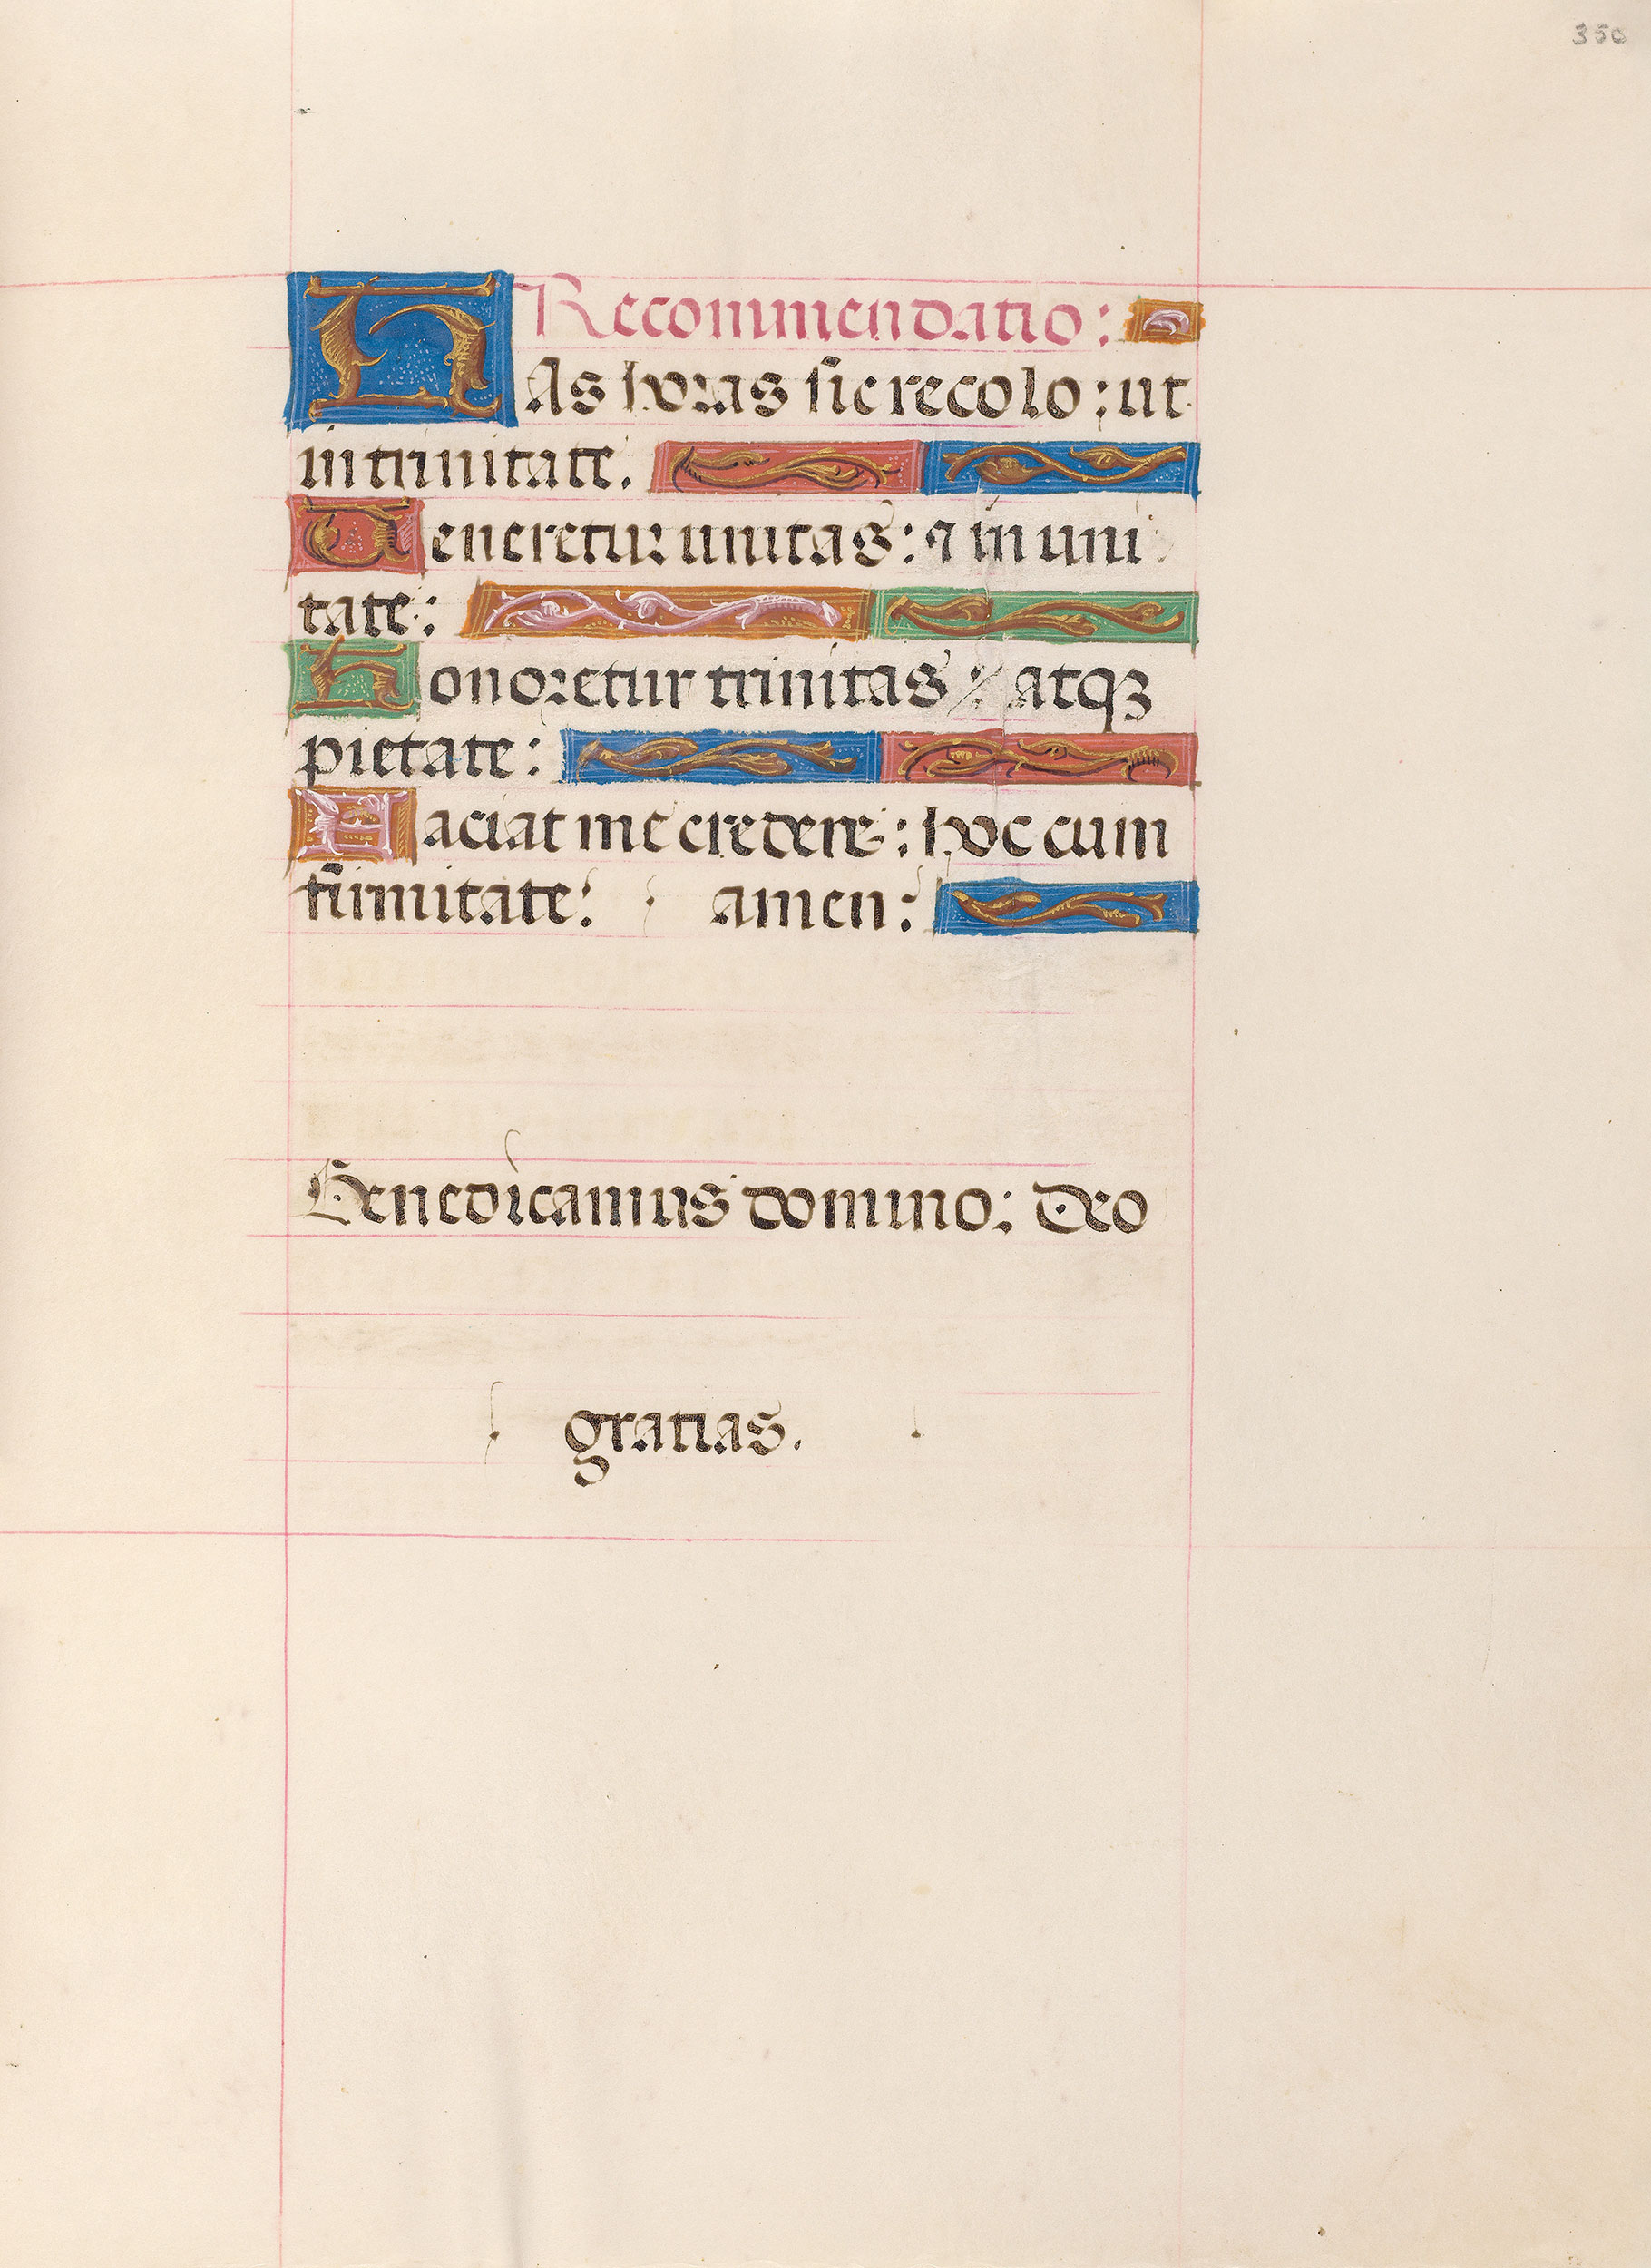 350
Recommendatio:
HAs horas sic recolo: ut
in trinitate.
Veneretur unitas: ⁊ in uni
tate:
Honoretur trinitas: atqꝫ
pietate:
Faciat me credere: hoc cum
firmitate: amen:
Benedicamus domino: Deo
gratias.